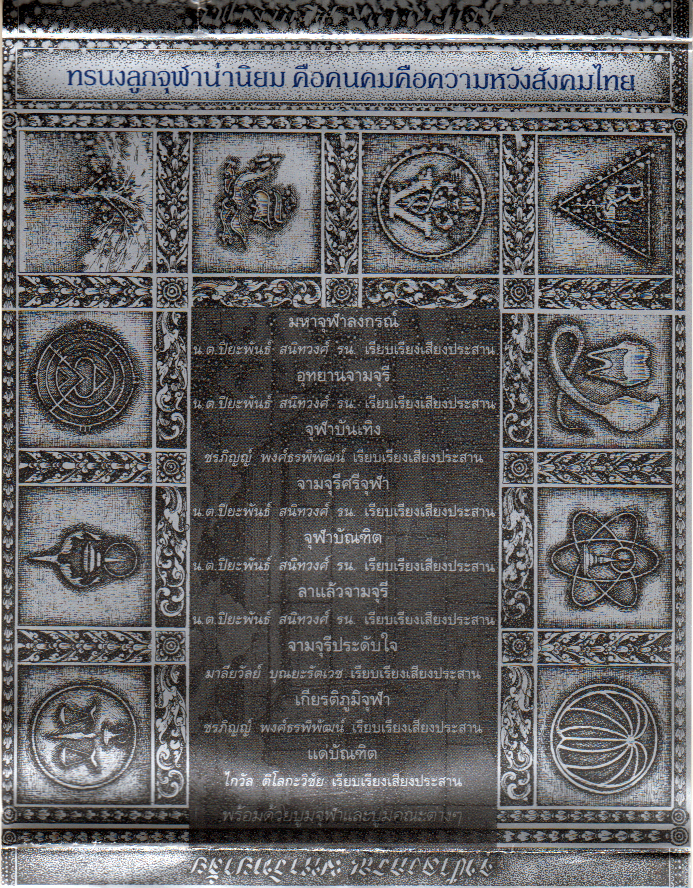 ทรนงลูกจุฬาน่านิยม คือคนคมคือความหวังสังคมไทย
มหาจุฬาลงกรณ์
น.ต.ปิยะพันธ์ สนิทวงศ์ รน. เรียบเรียงเสียงประสาน
อุทยานจามจุรี
น.ต.ปิยะพันธ์ สนิทวงศ์ รน. เรียบเรียงเสียงประสาน
จุฬาบันเทิง
ชรภิญญ์ พงศ์ธรพิพัฒน์ เรียบเรียงเสียงประสาน
จามจุรีศรีจุฬา
น.ต.ปิยะพันธ์ สนิทวงศ์ รน. เรียบเรียงเสียงประสาน
จุฬาบัณฑิต
น.ต.ปิยะพันธ์ สนิทวงศ์ รน. เรียบเรียงเสียงประสาน
ลาแล้วจามจุรี
น.ต.ปิยะพันธ์ สนิทวงศ์ รน. เรียบเรียงเสียงประสาน
จามจุรีประดับใจ
มาลียวัลย์ บุณยะรัตเวช เรียบเรียงเสียงประสาน
เกียรติภูมิจุฬา
ชรภิญญ์ พงศ์ธรพิพัฒน์ เรียบเรียงเสียงประสาน
แดบัณฑิต
ไกวัล ติโลกะวิชัย เรียบเรียงเสียงประสาน
พร้อมด้วยบูมจุฬาและบูมคณะต่างๆ